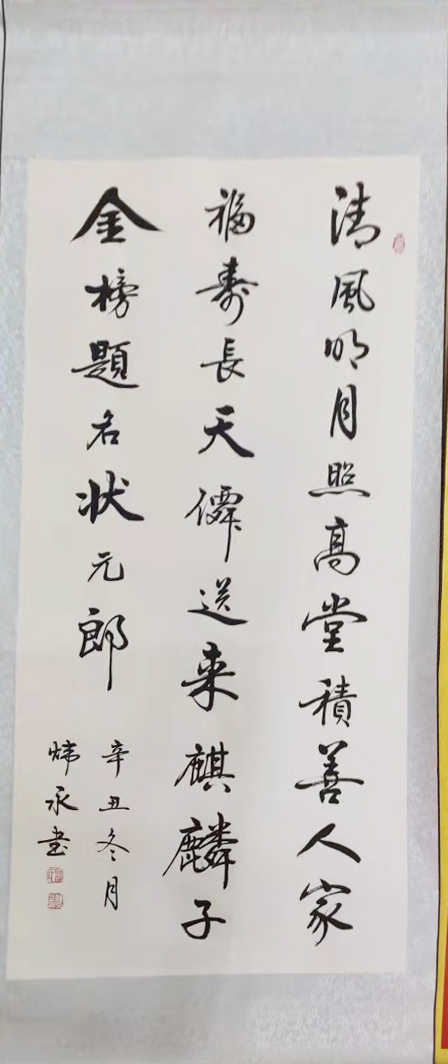 清風明月照高堂積善人家
福壽長天僊送来麒麟子
金榜題名状元郎
辛丑冬月
炜承书